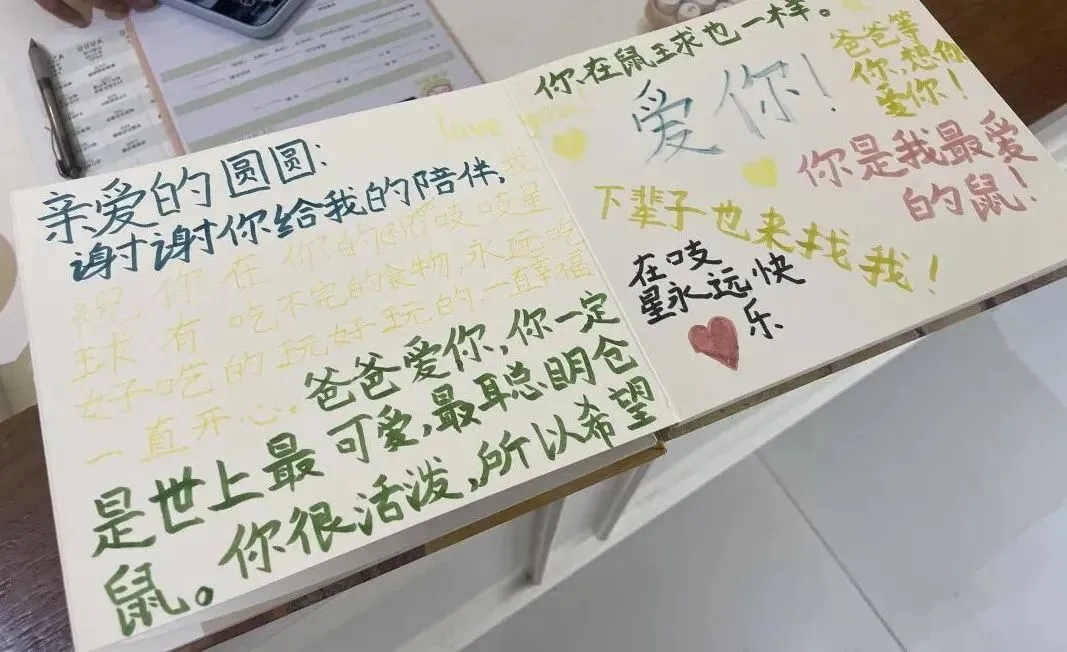 亲爱的圆圆：
谢谢你给我的陪伴，
我
祝你在你的吱吱星
球有吃不完的食物，永远吃
好吃的玩好玩的一直幸福
一直开心。
爸爸爱你，你一定
是世上最可爱，最聪明仓
鼠。你很活泼，所以希望
love you!
你在鼠王球也一样。
爱你！
爸爸等
你，想你
爱你！
你是我最爱
的鼠！
下辈子也来找我！
在吱
星永远快
乐